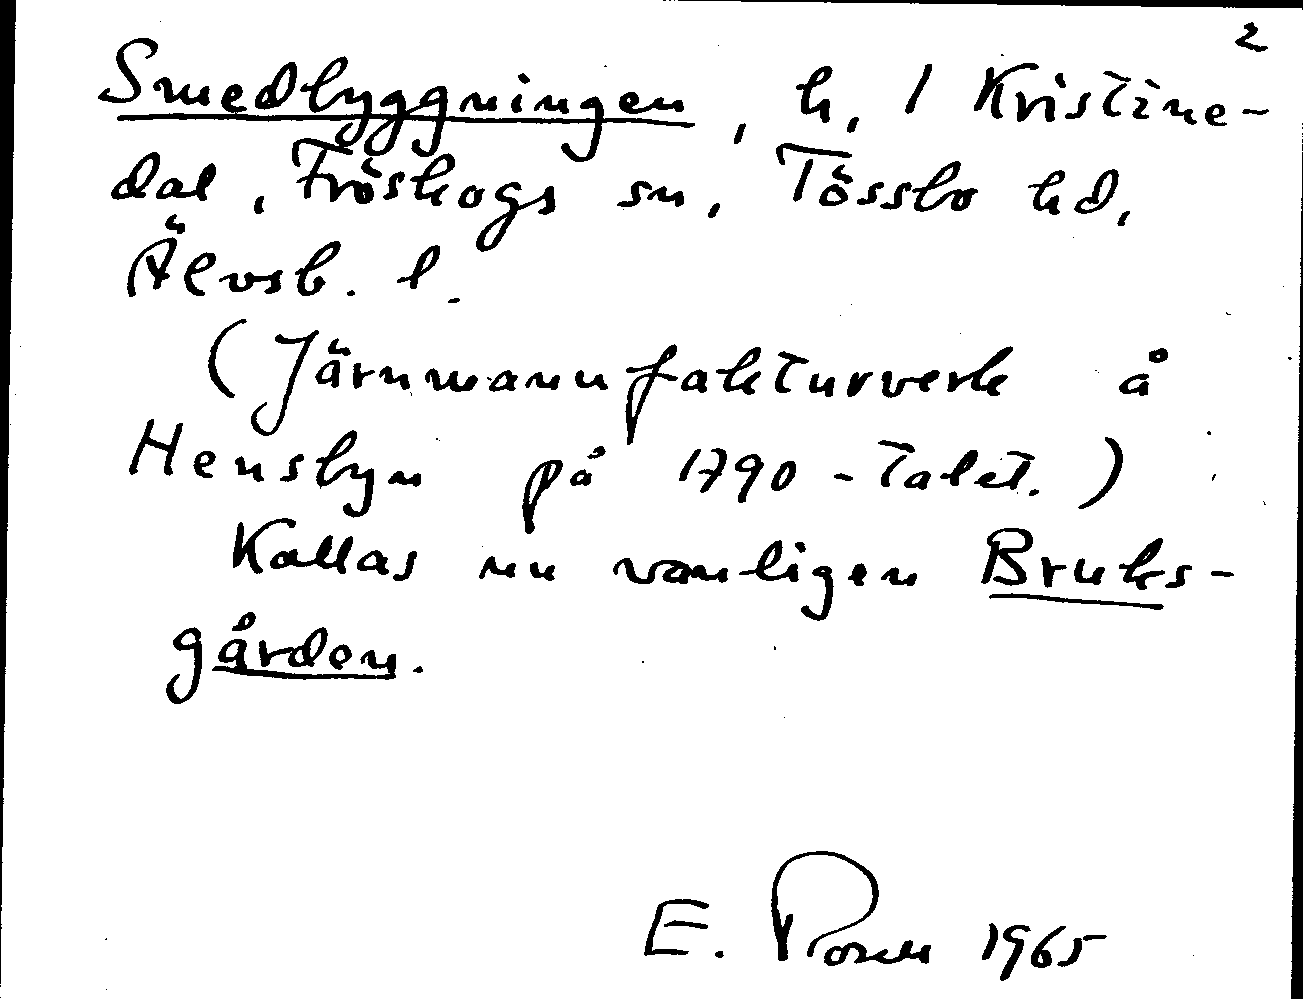 2
Smedbyggningen, h, / Kristine-
dal, Fröskogs sn, Tössbo hd,
Älvsb. l.
(Järnmanufakturverk å
Hensbyn på 1790-talet.)
Kallas nu vanligen Bruks-
gården.
E. Rosell 1965